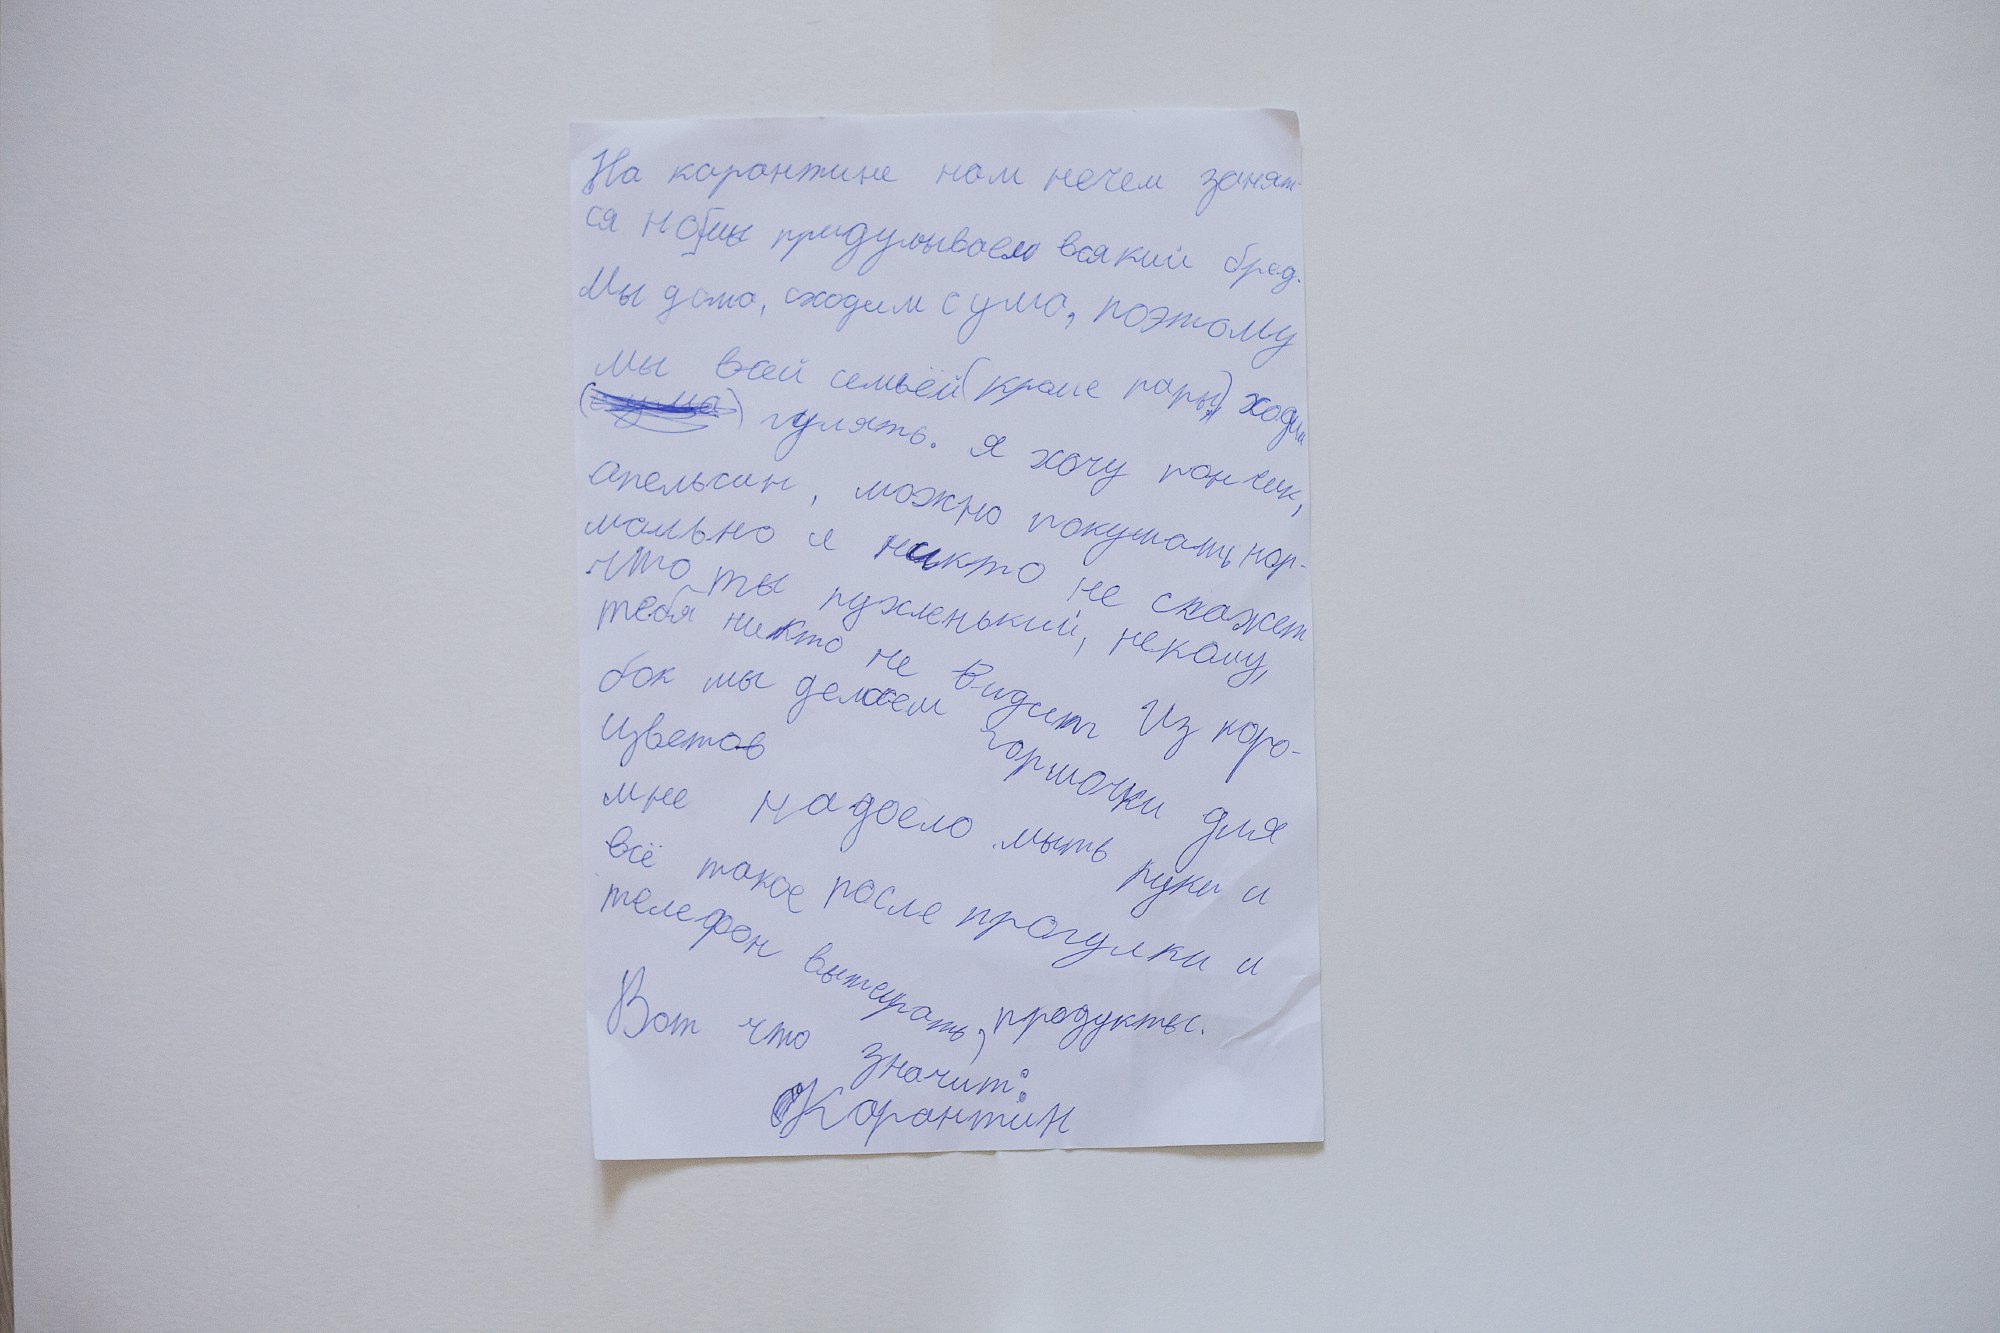 На карантине нам нечем занят-
ся но мы придумываем всякий бред.
Мы дома, сходим с ума, поэтому
мы всей семьёй (кроме папы) ходим
(с ума) гулять. Я хочу пончик,
апельсин, можно покушать нор-
мально и никто не скажет
что ты пухленький, некому,
тебя никто не видит. Из коро-
бок мы делаем горшочки для
цветов
мне надоело мыть руки и
всё такое после прогулки и
телефон вытирать, продукты.
Вот что значит:
Карантин